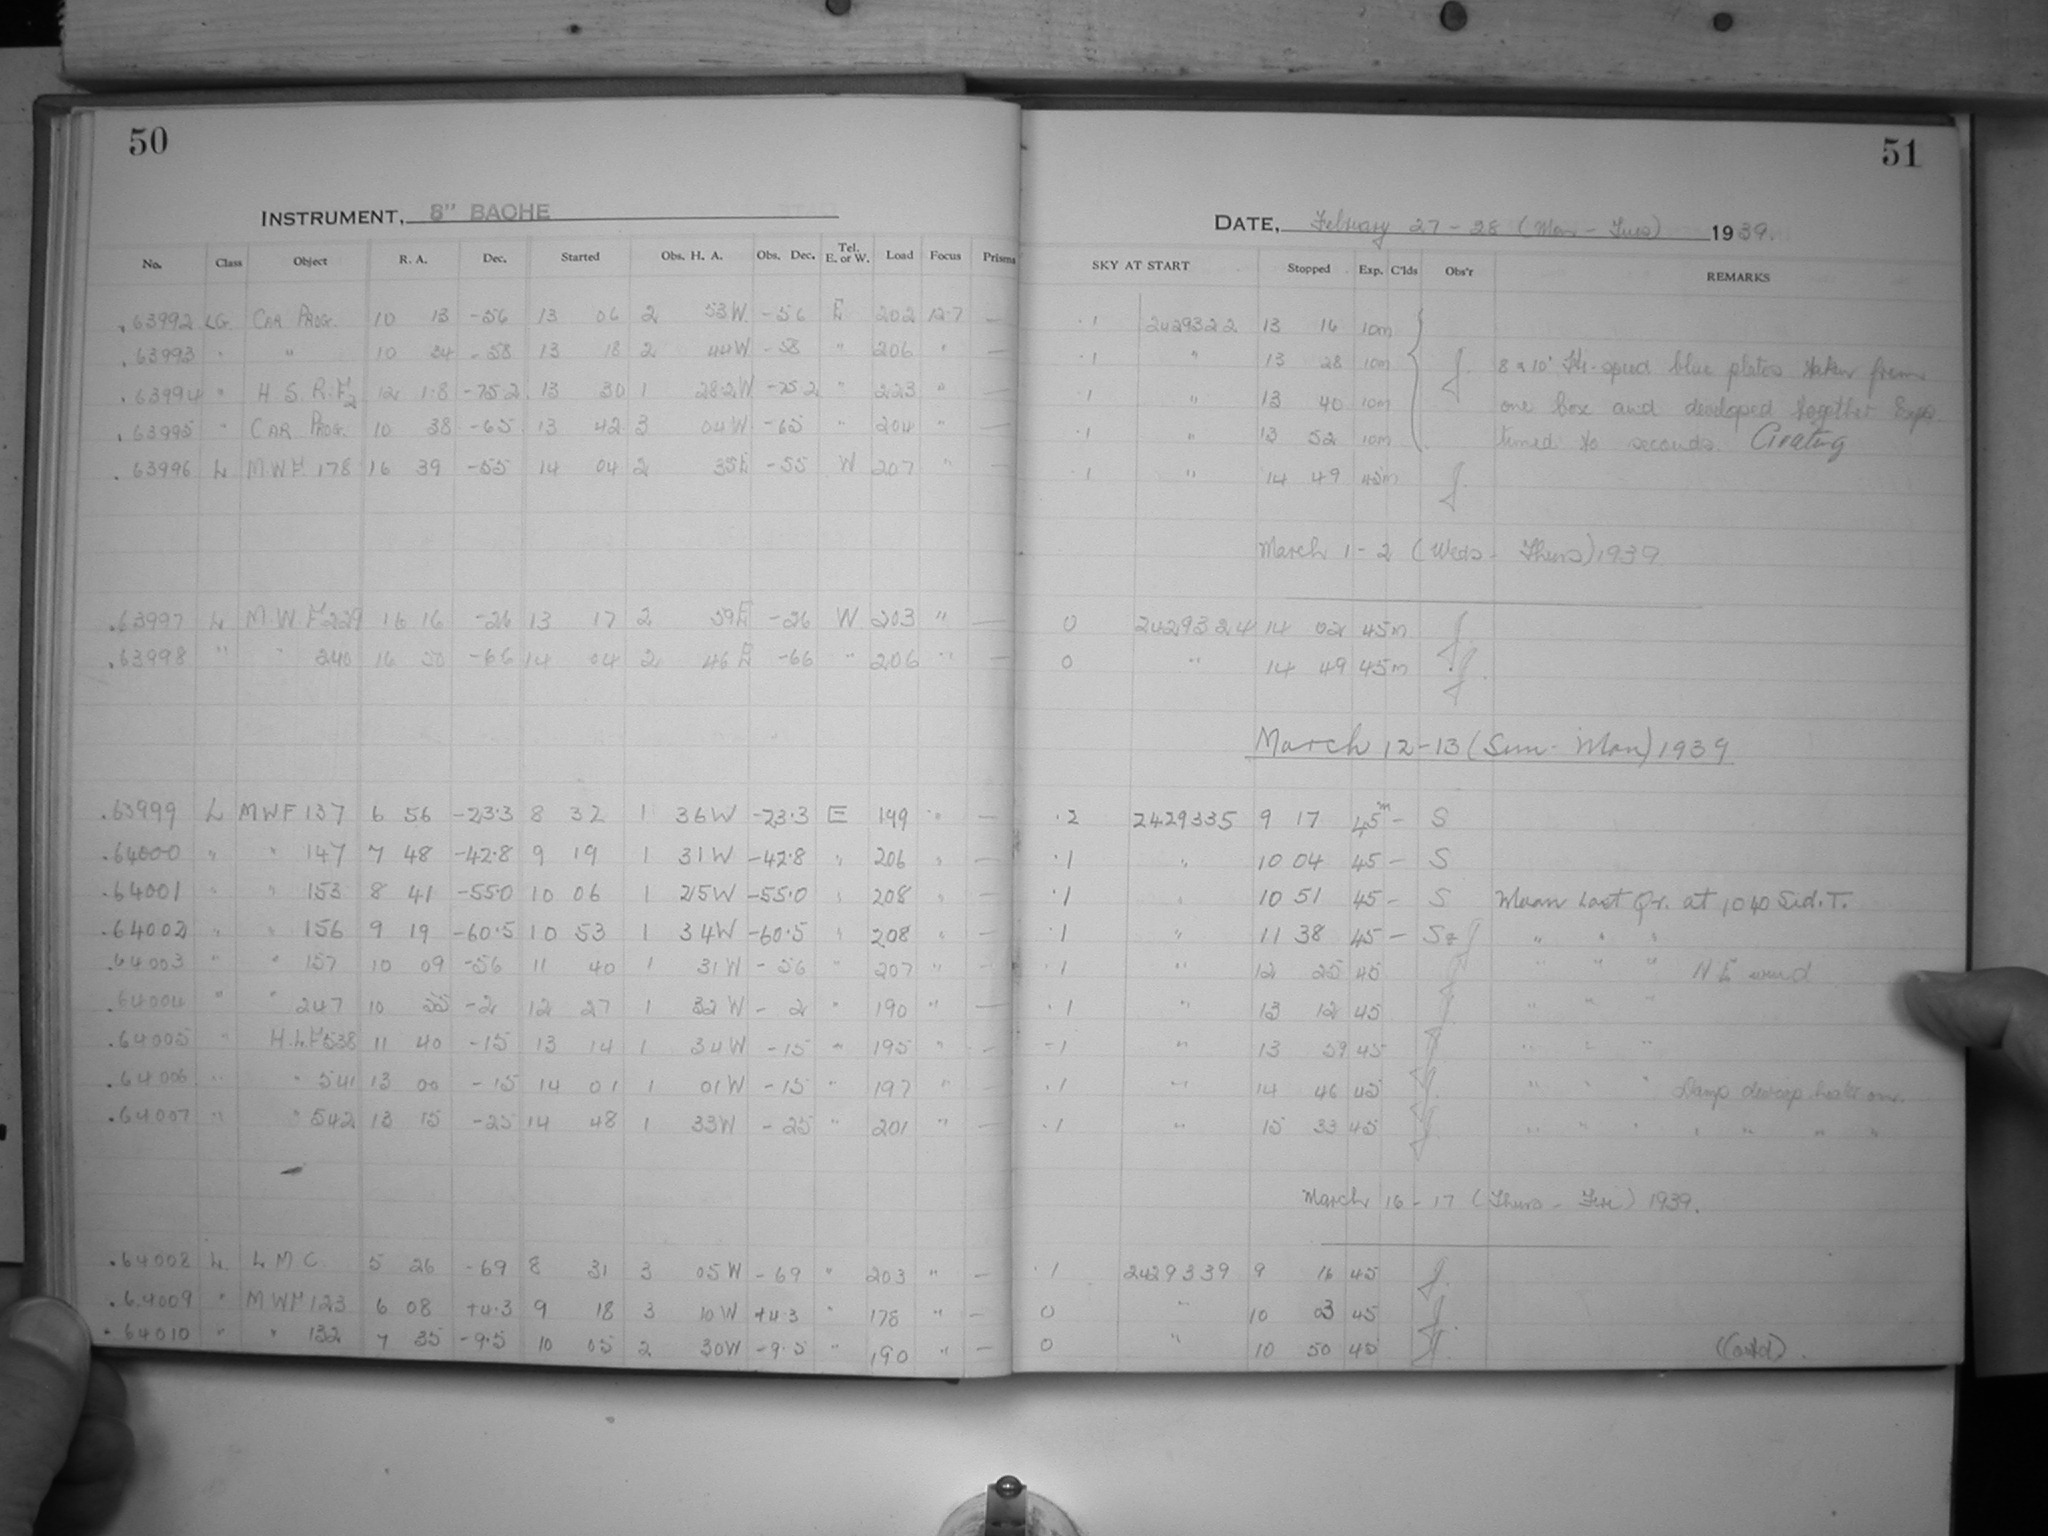 50
INSTRUMENT, 8" BACHE
No. Class Object R. A. Dec. Started Obs. H. A. Obs. Dec. Tel. E. or W. Load Focus Prisms
.63992 LG. CAR PROG. 10 13 -56 13 06 2 53W -56 E 202 12.7 —
.63993 " " 10 34 -58 13 18 2 44W -58 " 206 " —
.63994 " H S R.F2 12 1.8 -75.2 13 30 1 28.2W -75.2 " 223 " —
.63995 " CAR PROG. 10 38 -65 13 42 3 04W -65 " 204 " —
.63996 L MWF 178 16 39 -55 14 04 2 35E -55 W 207 " —
.63997 L M W F 239 16 16 -26 13 17 2 59E -26 W 203 " —
.63998 " " 240 16 50 -66 14 04 2 46E -66 " 206 " —
.63999 L MWF 137 6 56 -23.3 8 32 1 36W -23.3 E 199 " —
.64000 " " 147 7 48 -42.8 9 19 1 31W -42.8 " 206 " —
.64001 " " 153 8 41 -55.0 10 06 1 25W -55.0 " 208 " —
.64002 " " 156 9 19 -60.5 10 53 1 34W -60.5 " 208 " —
.64003 " " 157 10 09 -56 11 40 1 31W -56 " 207 " —
.64004 " " 247 10 55 -2 12 27 1 32W -2 " 190 " —
.64005 " H.L.F 538 11 40 -15 13 14 1 34W -15 " 195 " —
.64006 " " 541 13 00 -15 14 01 1 01W -15 " 197 " —
.64007 " " 542 13 15 -25 14 48 1 33W -25 " 201 " —
.64008 L L M C 5 26 -69 8 31 3 05W -69 " 203 " —
.64009 " MWF 123 6 08 +4.3 9 18 3 10W +4.3 " 178 " —
.64010 " " 132 7 35 -9.5 10 05 2 30W -9.5 " 190 " —
51
DATE, February 27 - 28 (Mon - Tues) 1939.
SKY AT START Stopped Exp. C'lds Obs'r REMARKS
.1 2429322 13 16 10m
.1 " 13 28 10m J. 8 x 10" Hi-speed blue plates taken from
.1 " 13 40 10m one box and developed together Exps.
.1 " 13 52 10m timed to seconds. Grating
.1 " 14 49 45m J.
March 1 - 2 (Weds - Thurs) 1939
0 2429324 14 02 45m J.
0 " 14 49 45m J.
March 12-13 (Sun - Mon) 1939
.2 2429335 9 17 45m — S
.1 " 10 04 45 — S
.1 " 10 51 45 — S Moon Last Qr. at 10 40 Sid. T.
.1 " 11 38 45 — S & J " " "
.1 " 12 25 45 J " " " N E wind
.1 " 13 12 45 J " " "
.1 " 13 59 45 J " " "
.1 " 14 46 45 J. " " " Damp dewcap heater on.
.1 " 15 33 45 J. " " " " " " "
March 16 - 17 (Thurs - Fri) 1939.
.1 2429339 9 16 45 J.
0 " 10 03 45 J.
0 " 10 50 45 J. (Contd).